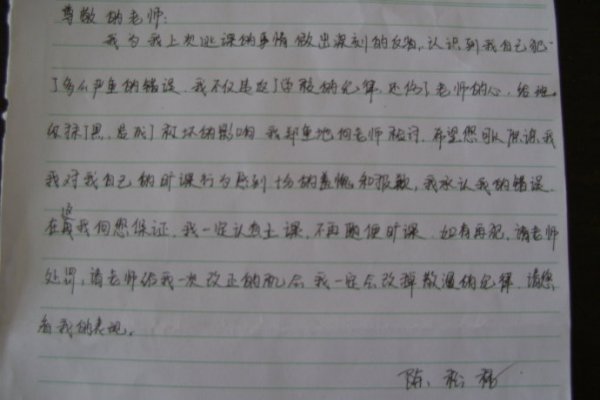 尊敬的老师:
我为我上次逃课的事情做出深刻的反省,认识到我自己犯
了多么严重的错误,我不仅违反了学校的纪律,还伤了老师的心,给班
级抹了黑,造成了极坏的影响,我郑重地向老师检讨,希望您可以原谅我
我对我自己的旷课行为感到十分的羞愧和报歉,我承认我的错误,
在这我向您保证,我一定认真上课,不再随便旷课,如有再犯,请老师
处罚,请老师给我一次改正的机会,我一定会改掉散漫的纪律,请您
看我的表现。
陈 松